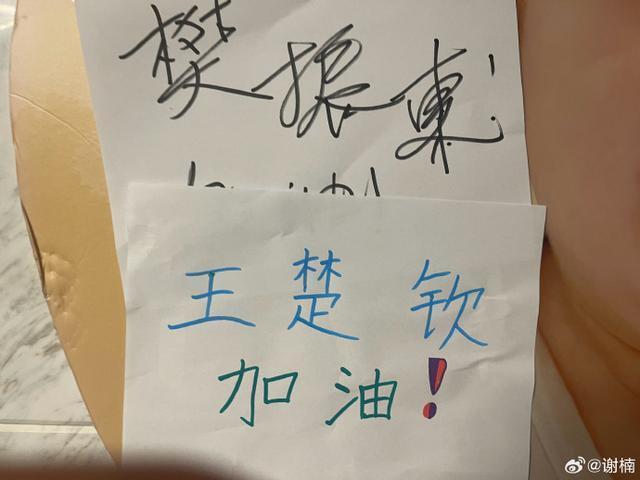 樊振東
王楚钦
加油!
@谢楠